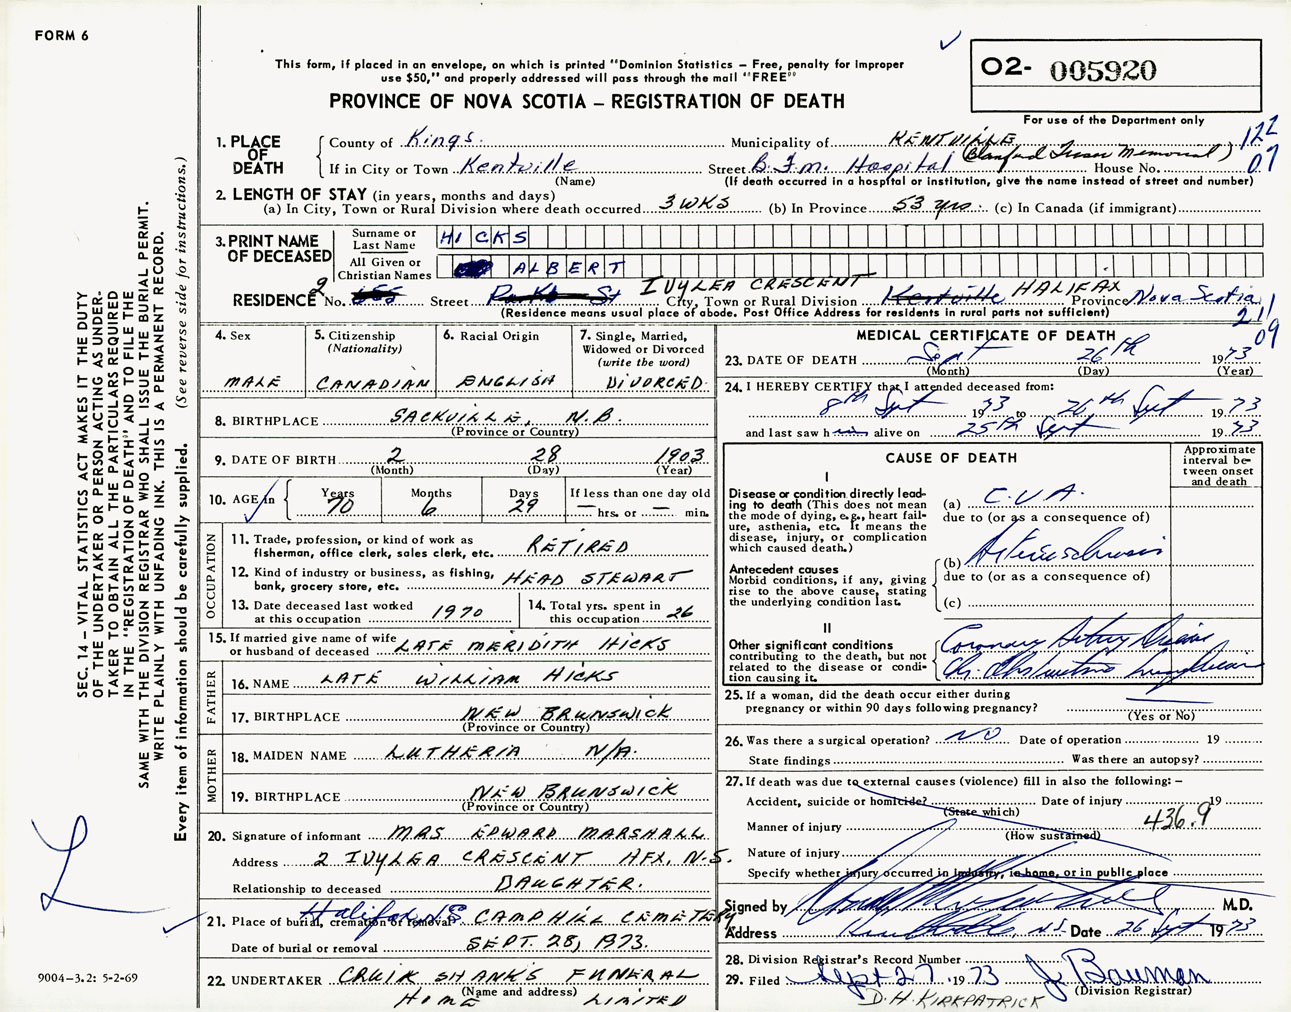 FORM 6
This form, if placed in an envelope, on which is printed "Dominion Statistics – Free, penalty for improper
use $50," and properly addressed will pass through the mail "FREE"
PROVINCE OF NOVA SCOTIA – REGISTRATION OF DEATH
02- 005920
For use of the Department only
122
07
1. PLACE OF DEATH County of Kings. Municipality of KENTVILLE
If in City or Town Kentville Street B.F.M. Hospital (Blanford Fraser Memorial) House No.
(Name) (If death occurred in a hospital or institution, give the name instead of street and number)
2. LENGTH OF STAY (in years, months and days)
(a) In City, Town or Rural Division where death occurred 3 WKS (b) In Province 53 yrs. (c) In Canada (if immigrant)
3. PRINT NAME OF DECEASED Surname or Last Name HICKS
All Given or Christian Names ALBERT
RESIDENCE No. 2 Street IVYLEA CRESCENT City, Town or Rural Division Kentville HALIFAX Province Nova Scotia
(Residence means usual place of abode. Post Office Address for residents in rural parts not sufficient)
211
09
4. Sex MALE
5. Citizenship (Nationality) CANADIAN
6. Racial Origin ENGLISH
7. Single, Married, Widowed or Divorced (write the word) DIVORCED
8. BIRTHPLACE SACKVILLE, N.B.
(Province or Country)
9. DATE OF BIRTH 2 28 1903
(Month) (Day) (Year)
10. AGE in Years 70 Months 6 Days 29 If less than one day old — hrs. or — min.
OCCUPATION
11. Trade, profession, or kind of work as fisherman, office clerk, sales clerk, etc. RETIRED
12. Kind of industry or business, as fishing, bank, grocery store, etc. HEAD STEWART
13. Date deceased last worked at this occupation 1970
14. Total yrs. spent in this occupation 26
15. If married give name of wife or husband of deceased LATE MERIDITH HICKS
FATHER
16. NAME LATE WILLIAM HICKS
17. BIRTHPLACE NEW BRUNSWICK
(Province or Country)
MOTHER
18. MAIDEN NAME LUTHERIA N/A.
19. BIRTHPLACE NEW BRUNSWICK
(Province or Country)
20. Signature of informant MRS EDWARD MARSHALL
Address 2 IVYLEA CRESCENT HFX, N.S.
Relationship to deceased DAUGHTER.
21. Place of burial, cremation or removal Halifax NS CAMPHILL CEMETERY
Date of burial or removal SEPT. 28, 1973.
22. UNDERTAKER CRUIKSHANKS FUNERAL
(Name and address)
HOME LIMITED
MEDICAL CERTIFICATE OF DEATH
23. DATE OF DEATH Sept 26th 1973
(Month) (Day) (Year)
24. I HEREBY CERTIFY that I attended deceased from:
8th Sept 1973 to 26th Sept 1973
and last saw h im alive on 25th Sept 1973
CAUSE OF DEATH
Approximate interval between onset and death
I
Disease or condition directly leading to death (This does not mean the mode of dying, e.g., heart failure, asthenia, etc. It means the disease, injury, or complication which caused death.)
(a) C.V.A.
due to (or as a consequence of)
Antecedent causes
Morbid conditions, if any, giving rise to the above cause, stating the underlying condition last.
(b) Arteriosclerosis
due to (or as a consequence of)
(c)
II
Other significant conditions contributing to the death, but not related to the disease or condition causing it.
Coronary Artery Disease
Ch. Obstructive Lung Disease
25. If a woman, did the death occur either during pregnancy or within 90 days following pregnancy?
(Yes or No)
26. Was there a surgical operation? NO Date of operation 19
State findings Was there an autopsy?
27. If death was due to external causes (violence) fill in also the following: –
Accident, suicide or homicide? Date of injury 19
(State which)
Manner of injury 436.9
(How sustained)
Nature of injury
Specify whether injury occurred in industry, in home, or in public place
Signed by M.D.
Address Kentville, N.S. Date 26 Sept 1973
28. Division Registrar's Record Number
29. Filed Sept 27 1973 J Bauman
(Division Registrar)
D.H. KIRKPATRICK
SEC. 14 – VITAL STATISTICS ACT MAKES IT THE DUTY
OF THE UNDERTAKER OR PERSON ACTING AS UNDER-
TAKER TO OBTAIN ALL THE PARTICULARS REQUIRED
IN THE "REGISTRATION OF DEATH" AND TO FILE THE
SAME WITH THE DIVISION REGISTRAR WHO SHALL ISSUE THE BURIAL PERMIT.
WRITE PLAINLY WITH UNFADING INK. THIS IS A PERMANENT RECORD.
Every item of information should be carefully supplied. (See reverse side for instructions.)
9004–3.2: 5-2-69